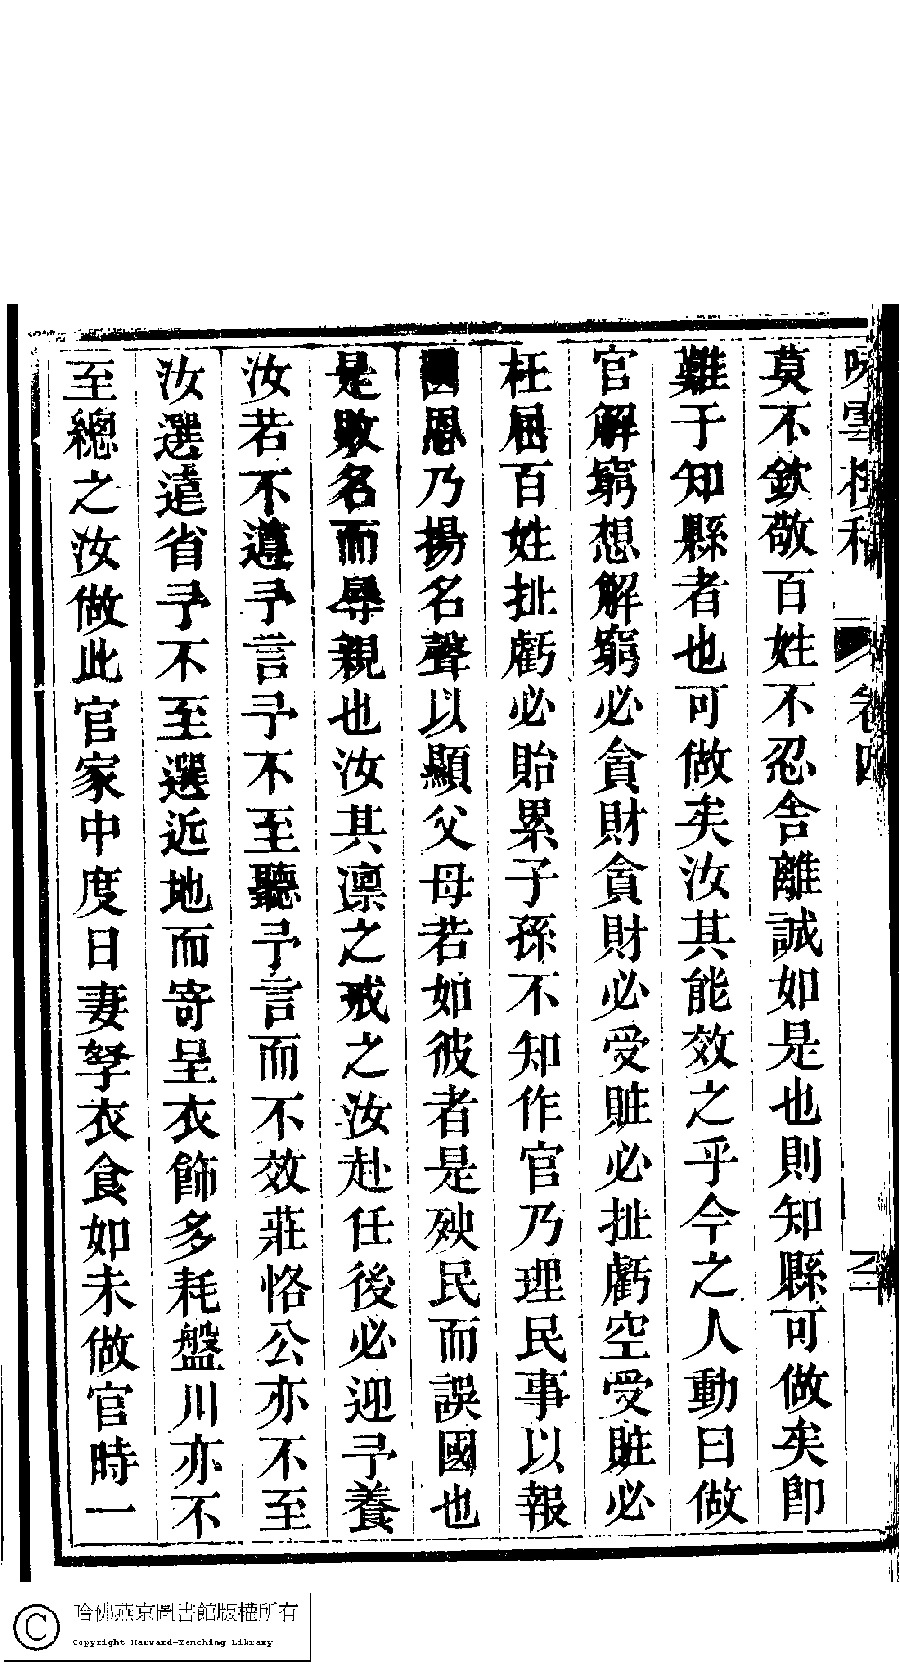 莫不欽敬百姓不忍舎離誠如是也則知縣可做矣卽
難于知縣者也可做矣汝其能效之乎今之人動曰做
官解窮想解窮必貪財貪財必受賍必扯虧空受賍必
枉屈百姓扯虧必貽累子孫不知作官乃理民事以報
國恩乃揚名聲以顯父母若如彼者是殃民而誤國也
是敗名而辱親也汝其凛之戒之汝赴任後必迎予養
汝若不遵予言予不至聽予言而不效莊恪公亦不至
汝選遠省予不至選近地而寄呈衣飾多耗盤川亦不
至總之汝做此官家中度日妻孥衣食如未做官時一
卷四
哈佛燕京圖書館版權所有
Copyright Harvard-Yenching Library